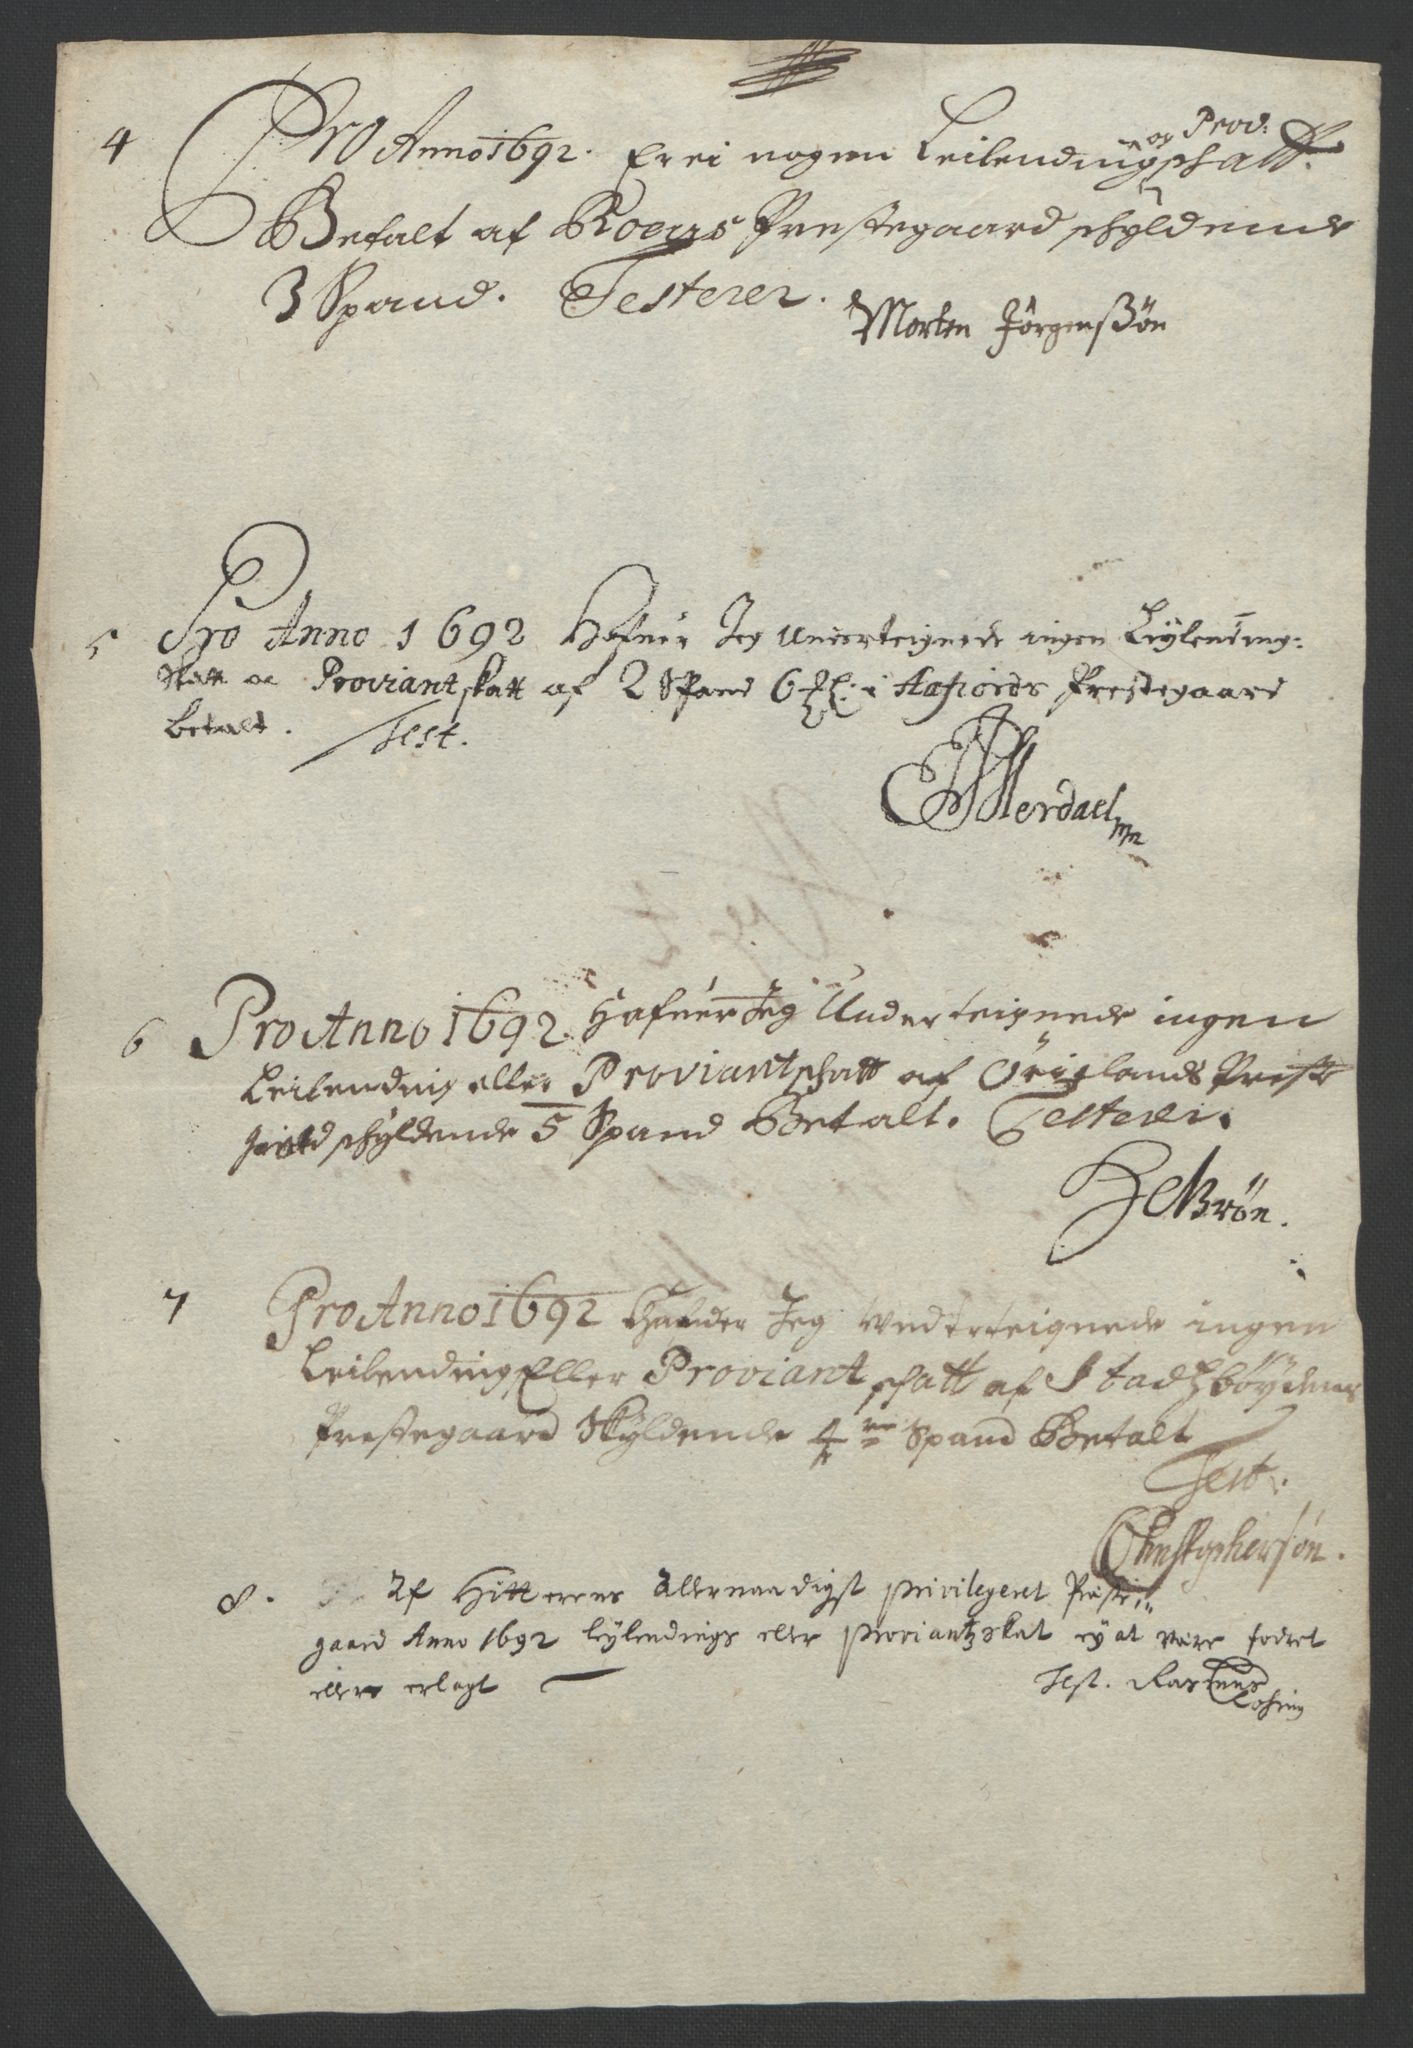 4 Pro Anno 1692. Er ei nogen Leilendings og Prov: schatt.
Betalt af Roens Prestegaard schyldende
3 Spand. Testerer.
Morten Jörgensßön
5 Pro Anno 1692 Hafuer Jeg Underteignede ingen Leÿlending:
skatt oc Proviantskatt af 2 Spand 6 i Aafiords Prestegaard
betalt. Test.
Werdael
6 Pro Anno 1692 Hafuer Jeg Underteignede ingen
Leilending eller Proviantschatt af Öriglands Preste
gield schyldende 5 Spand Betalt. Testerer.
Brön.
7 Pro Anno 1692 Hafuer Jeg Underteignede ingen
Leilending Eller Proviant schatt af Stadtzböÿdens
Prestegaard Skÿldende 4re Spand Betalt
Test.
Christophersön.
8. Af Hitterens Allernaadigst privilegeret Preste,,
gaard Anno 1692 leÿlendings eller proviantzskat eÿ at være fodret
eller erlagt Test. Rasmus